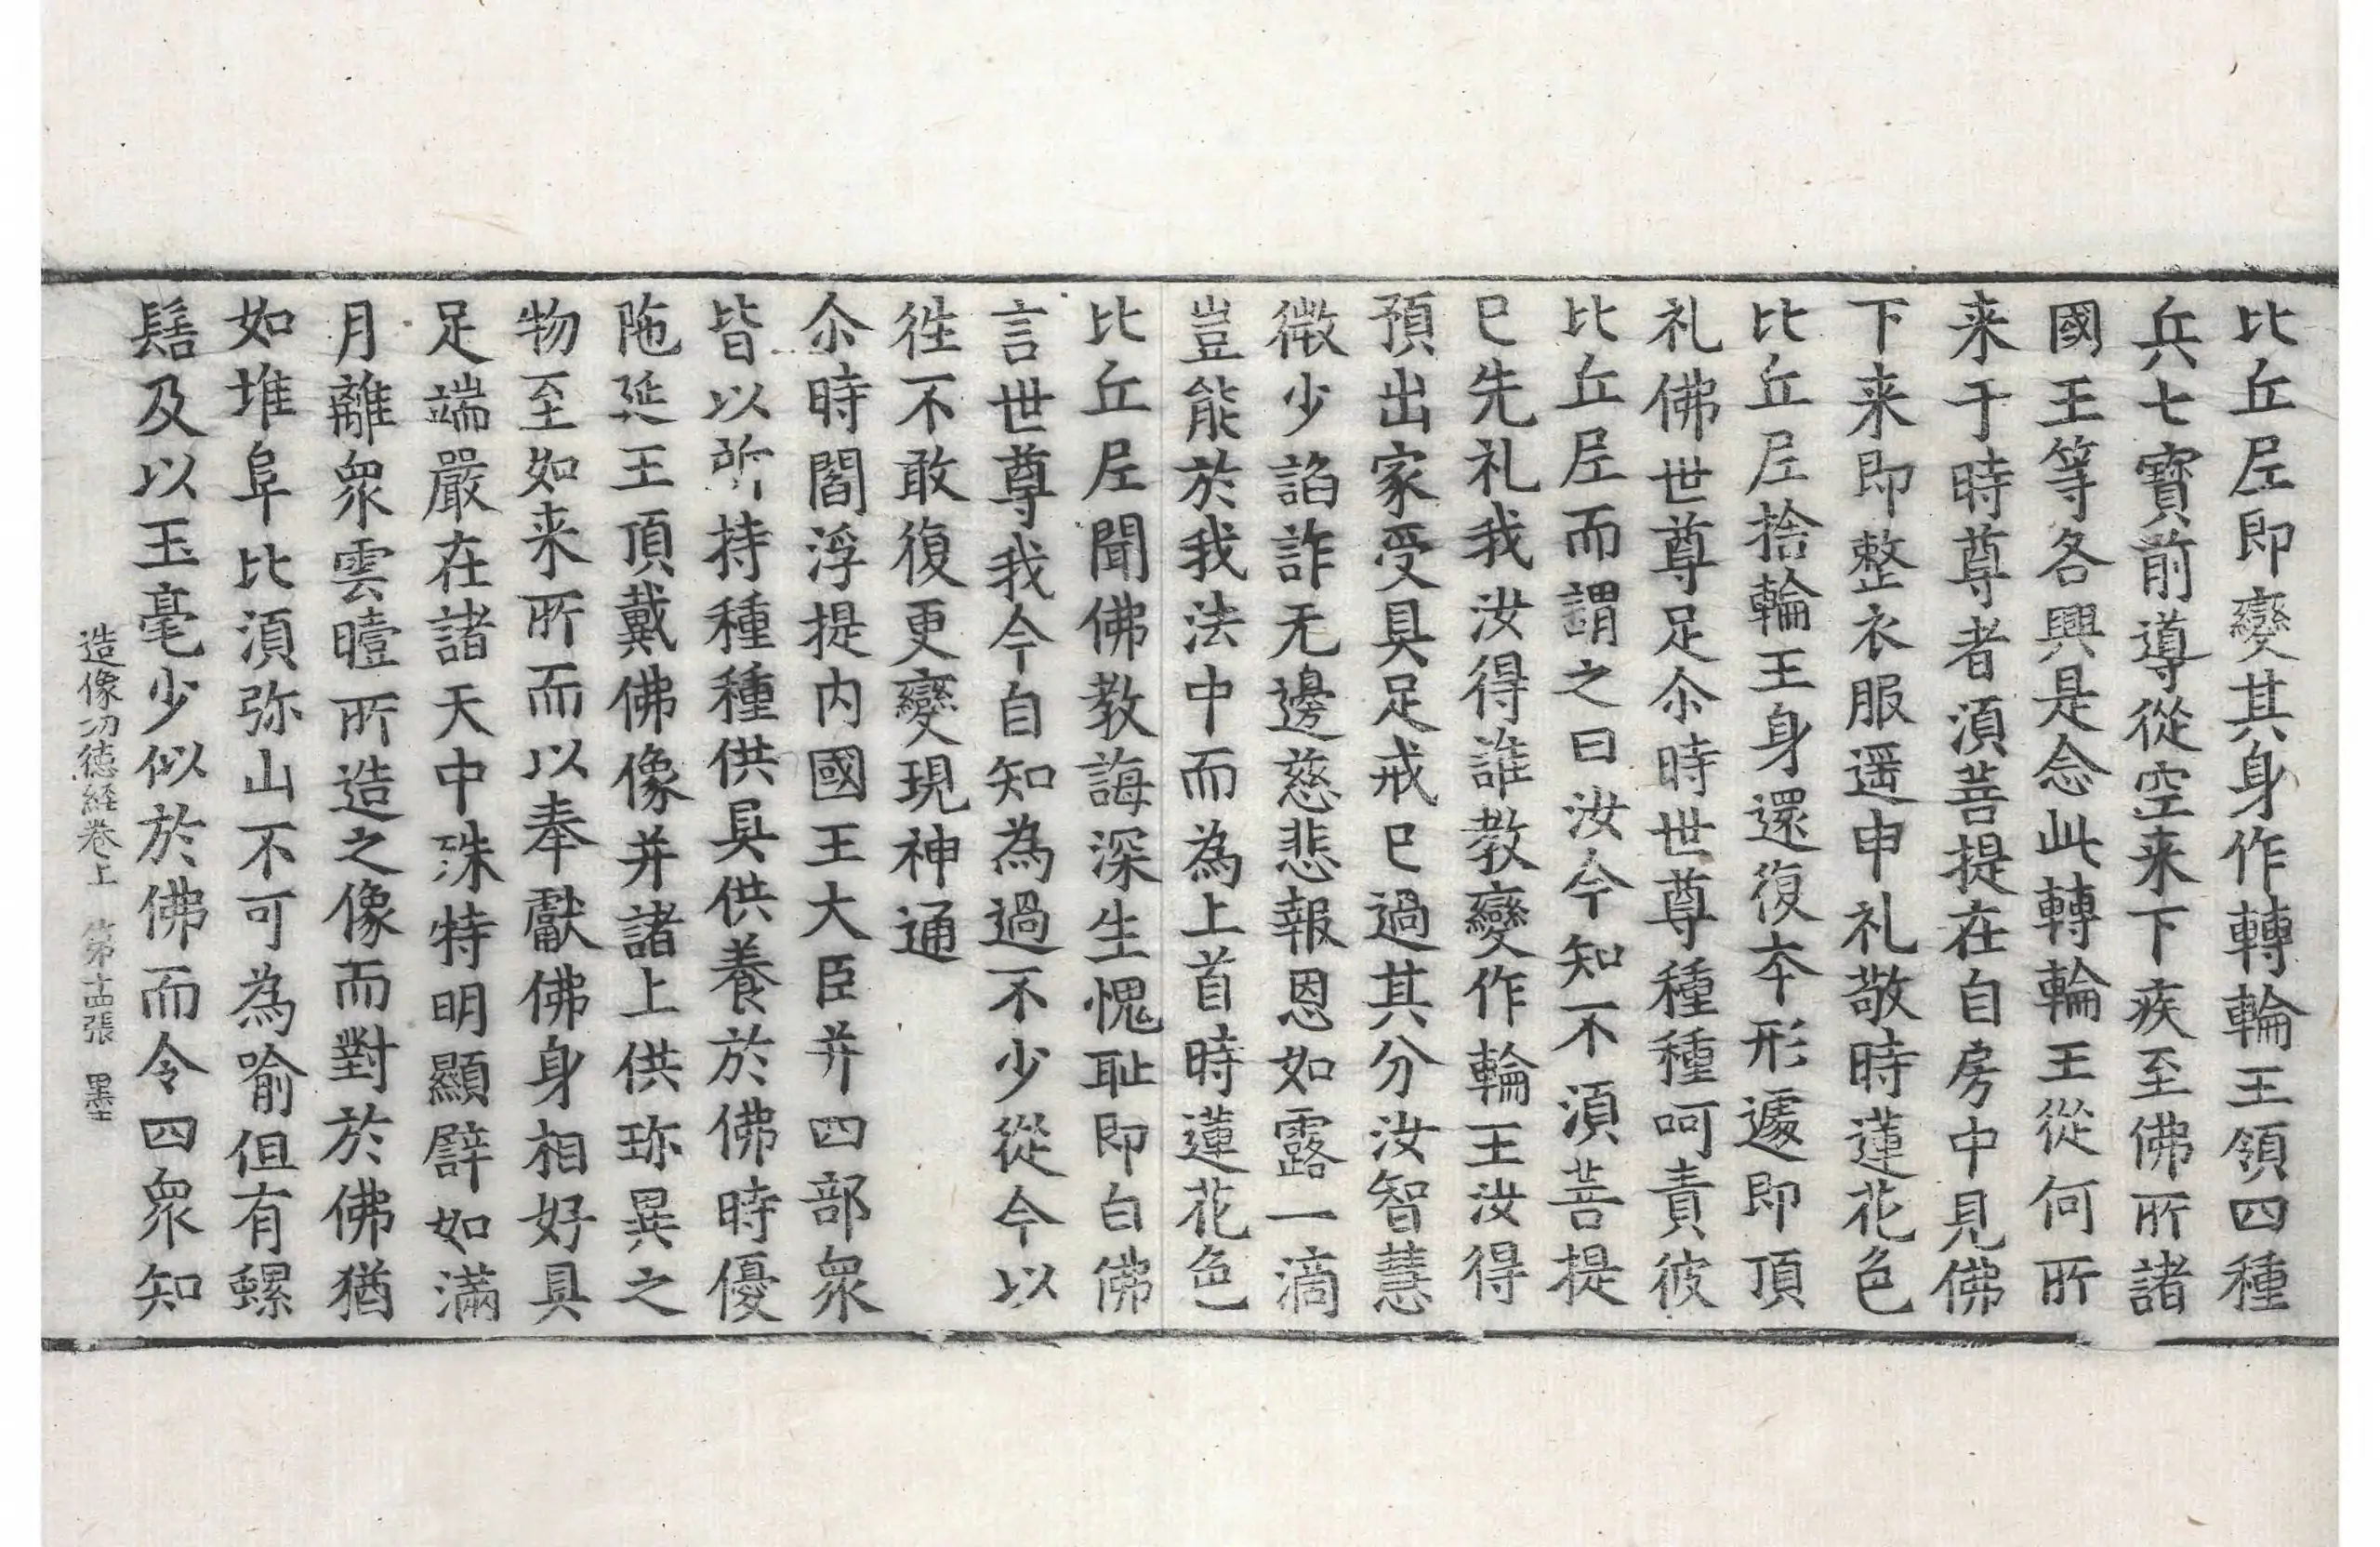 比丘尼即變其身作轉輪王領四種
兵七寶前導從空来下疾至佛所諸
國王等各興是念此轉輪王從何所
来于時尊者湏菩提在自房中見佛
下来即整衣服遥申礼敬時蓮花色
比丘尼捨輪王身還復夲形遽即頂
礼佛世尊足尒時世尊種種呵責彼
比丘尼而謂之曰汝今知不湏菩提
已先礼我汝得誰教變作輪王汝得
預出家受具足戒已過其分汝智慧
微少諂詐无邊慈悲報恩如露一滴
豈能於我法中而為上首時蓮花色
比丘尼聞佛教誨深生愧耻即白佛
言世尊我今自知為過不少從今以
徃不敢復更變現神通
尒時閻浮提内國王大臣并四部衆
皆以所持種種供具供養於佛時優
陁延王頂戴佛像并諸上供珎異之
物至如来所而以奉獻佛身相好具
足端嚴在諸天中殊特明顯譬如滿
月離衆雲曀所造之像而對於佛猶
如堆阜比湏弥山不可為喻但有螺
髻及以玉毫少似於佛而令四衆知
造像功徳経卷上　第十四張　墨